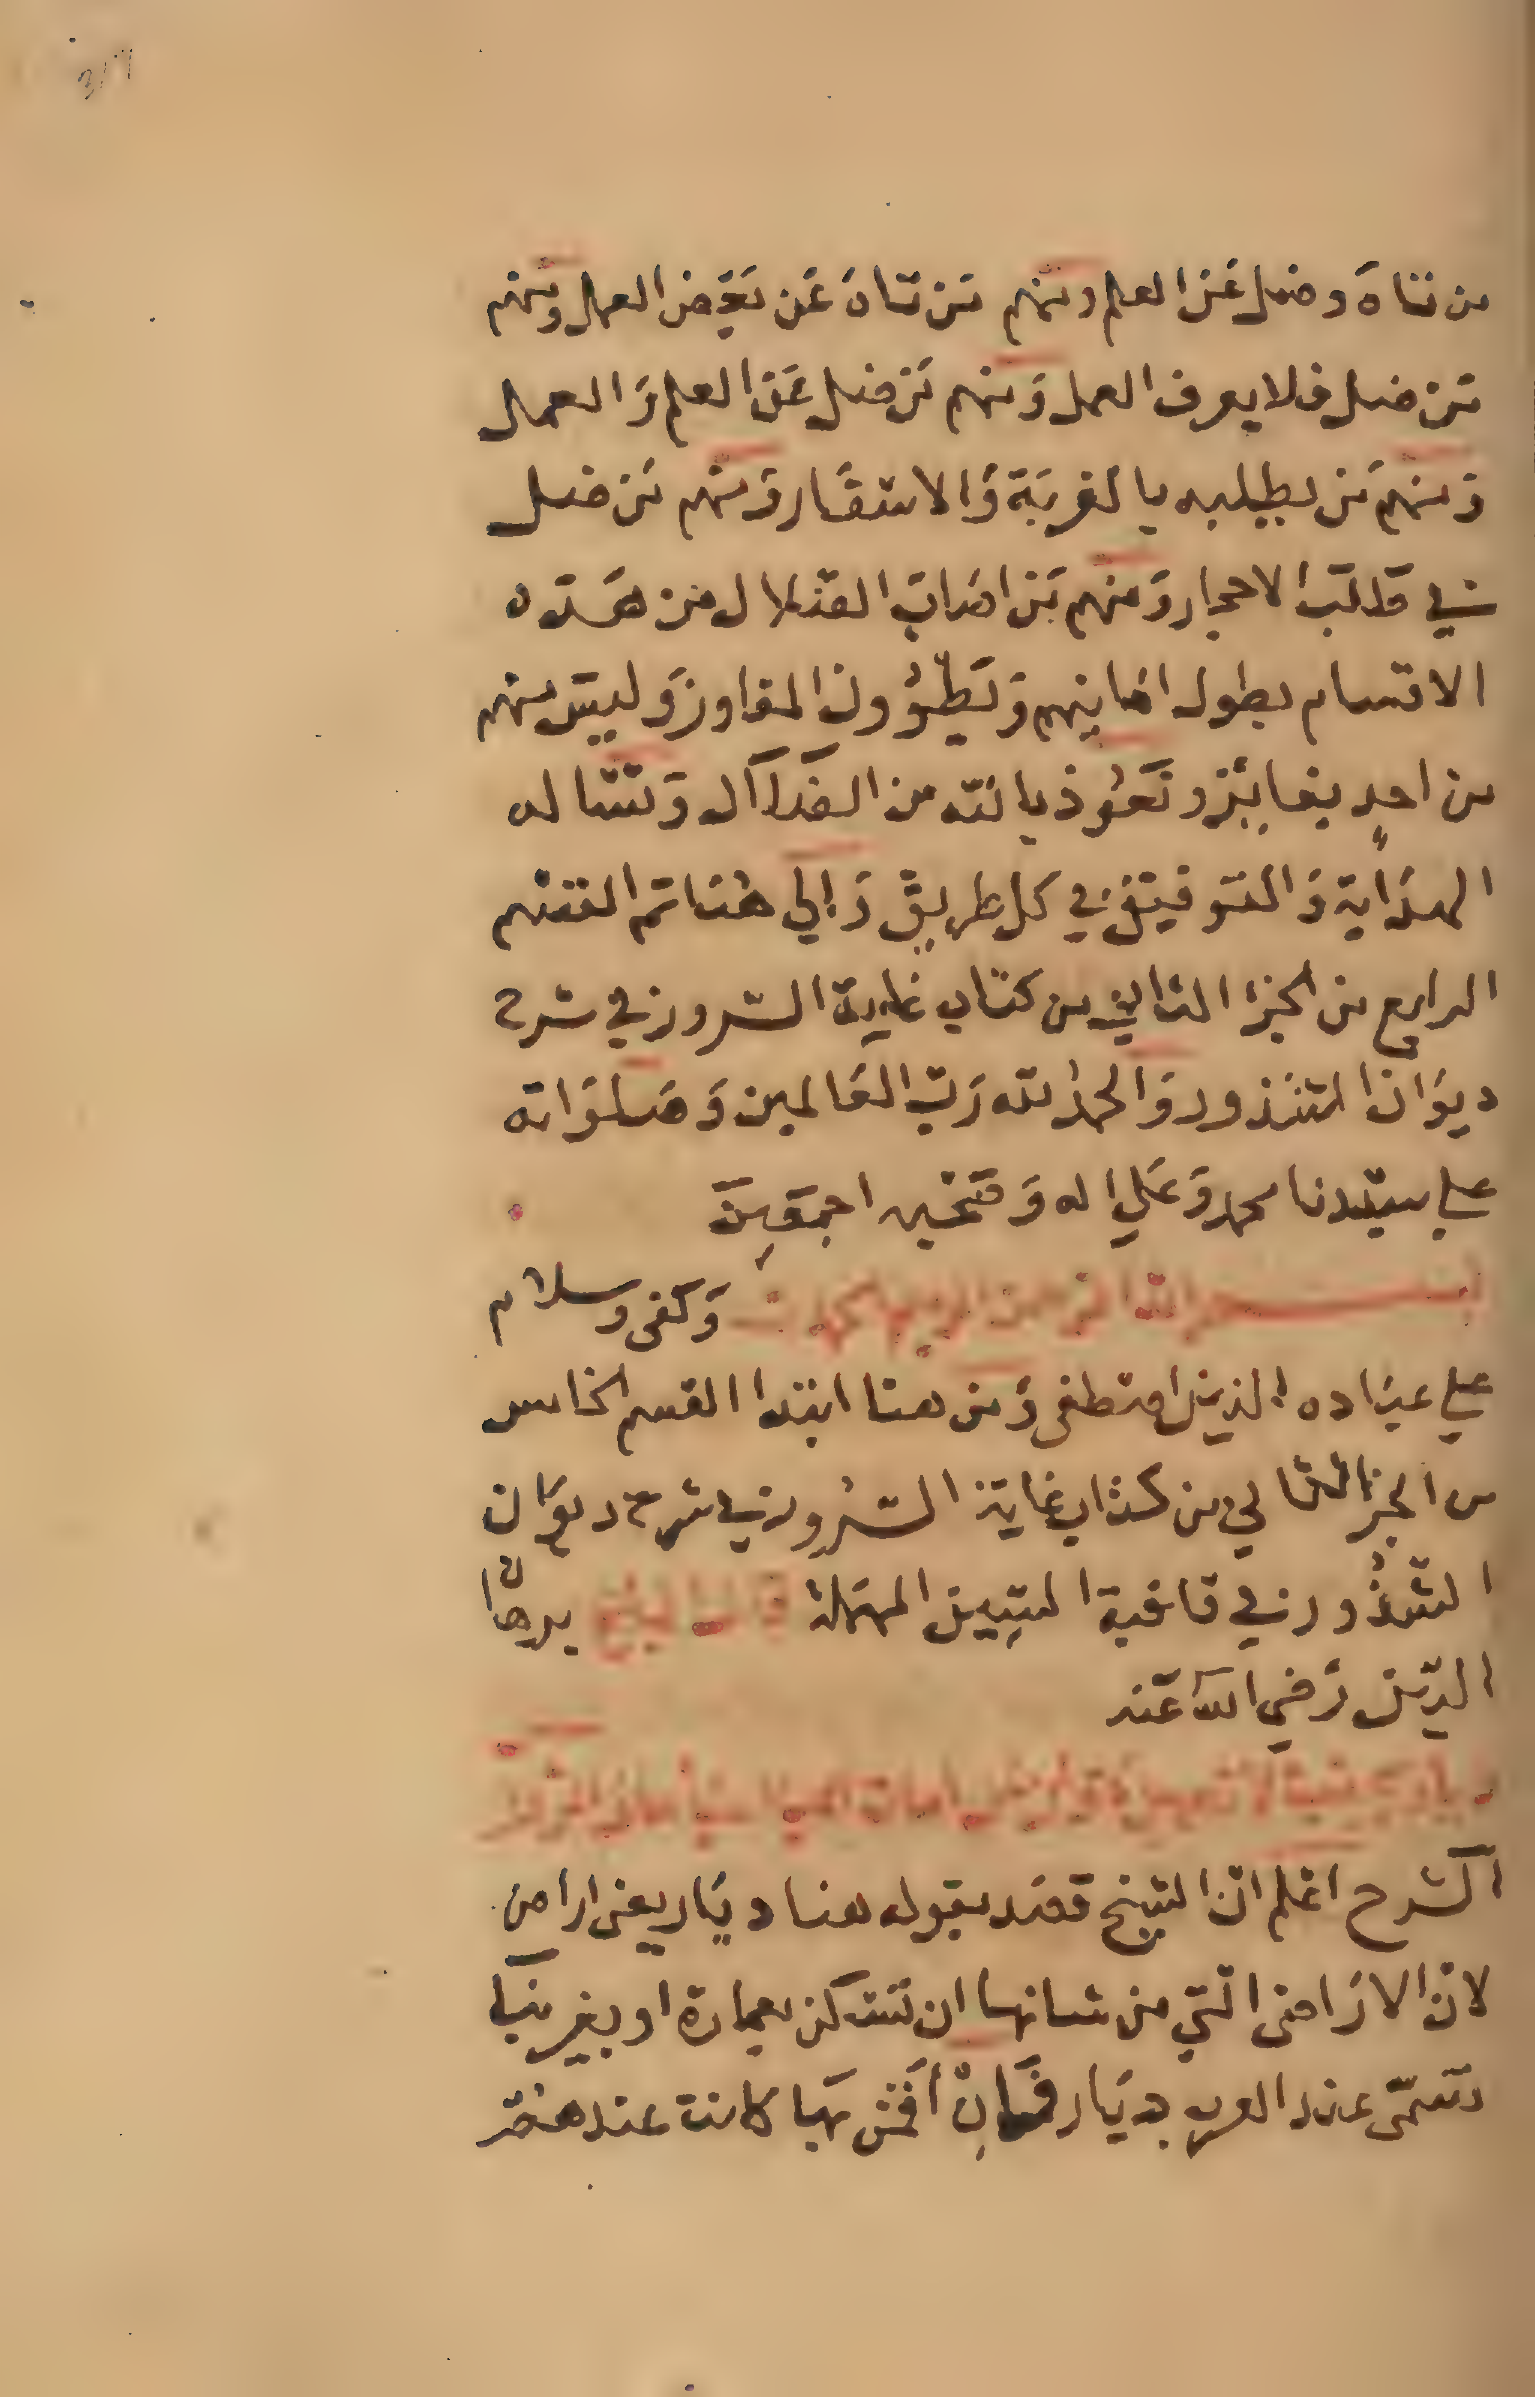 من تاهَ وضل عَن العلم ومنهم مَن تاهَ عَن بَعض العمل ومنهم
مَن ضل فلا يعرف العمل وَمنهم مَن ضل عَن العلم وَالعمل
وَمنهم مَن يطلبه بالغربَة وَالاسفَار وَمنهم مَن ضل
في طلَب الاحجار وَمنهم مَن اصَابَ الضلال من هَذه
الاقسام بطول امَانيهم وَيَطوُون المفاوز وَليسَ منهم
من احدٍ بفائِز ونَعُوذ بالله من الضلَال وَنَسَاله
الهدَاية وَالتوفيق في كل طريق وَالي هُنا تم القسم
الرابع من الجزء الثاني من كتاب غاية السرور في شرح
ديوَان الشذور وَالحمد لله رَبّ العَالمين وَصَلوَاته
علي سيّدنا محمد وَعَلي اله وَصَحبه اجمَعِينَ
بسم الله الرحمن الرحيم الحمد لله وَكفى وسلام
علي عبَاده الذين اصطفى وَمن هنا ابتدا القسم الخامس
من الجزء الثاني من كتاب غاية السُرور في شرح ديوَان
الشذُور في قافية السِين المهملة قال الشيخ برهَان
الدّين رَضي الله عَنه
الشرح اعلم انّ الشيخ قصَد بقوله هنا ديَار يعني اراضي
لانّ الارَاضي الّتي من شانها ان تسكن بعمارة او بغير بنَا
تسَمّى عند العرب ديَار فَان اقمش بهَا كانت عندهم